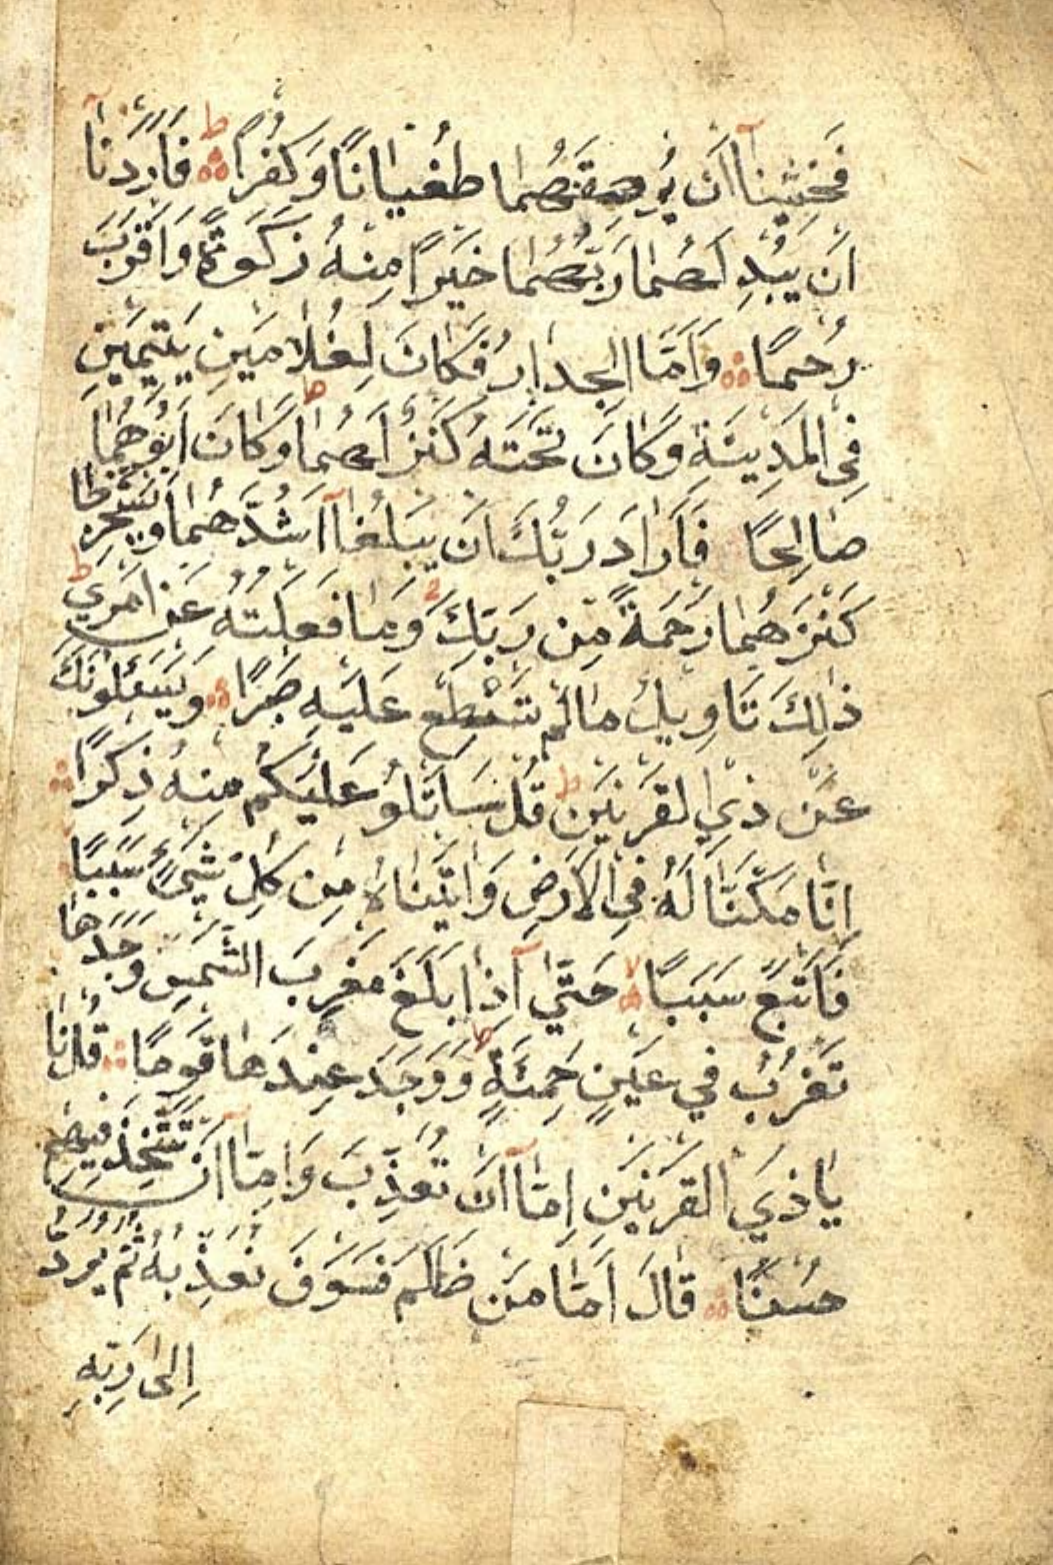 فَخَشِينَآ اَنْ يُرْهِقَهُمَا طُغْيَانًا وَكُفْرًا ط فَاَرَدْنَآ
اَنْ يُبْدِلَهُمَا رَبُّهُمَا خَيْرًا مِنْهُ زَكٰوةً وَاَقْرَبَ
رُحْمًا وَاَمَّا الْجِدَارُ فَكَانَ لِغُلَامَيْنِ يَتِيمَيْنِ
فِي الْمَدِينَةِ وَكَانَ تَحْتَهُ كَنْزٌ لَهُمَا وَكَانَ اَبُوهُمَا
صَالِحًا فَاَرَادَ رَبُّكَ اَنْ يَبْلُغَآ اَشُدَّهُمَا وَيَسْتَخْرِجَا
كَنْزَهُمَا رَحْمَةً مِنْ رَبِّكَ وَمَا فَعَلْتُهُ عَنْ اَمْرِي ط
ذٰلِكَ تَاْوِيلُ مَا لَمْ تَسْطِعْ عَلَيْهِ صَبْرًا وَيَسْئَلُونَكَ
عَنْ ذِي الْقَرْنَيْنِ ط قُلْ سَاَتْلُو عَلَيْكُمْ مِنْهُ ذِكْرًا
اِنَّا مَكَّنَّا لَهُ فِي الْاَرْضِ وَاٰتَيْنَاهُ مِنْ كُلِّ شَيْءٍ سَبَبًا
فَاَتْبَعَ سَبَبًا لا حَتّٰى اِذَا بَلَغَ مَغْرِبَ الشَّمْسِ وَجَدَهَا
تَغْرُبُ فِي عَيْنٍ حَمِئَةٍ وَوَجَدَ عِنْدَهَا قَوْمًا ط قُلْنَا
يَا ذَي الْقَرْنَيْنِ اِمَّآ اَنْ تُعَذِّبَ وَاِمَّآ اَنْ تَتَّخِذَ فِيهِمْ
حُسْنًا قَالَ اَمَّا مَنْ ظَلَمَ فَسَوْفَ نُعَذِّبُهُ ثُمَّ يُرَدُّ
اِلٰى رَبِّهِ